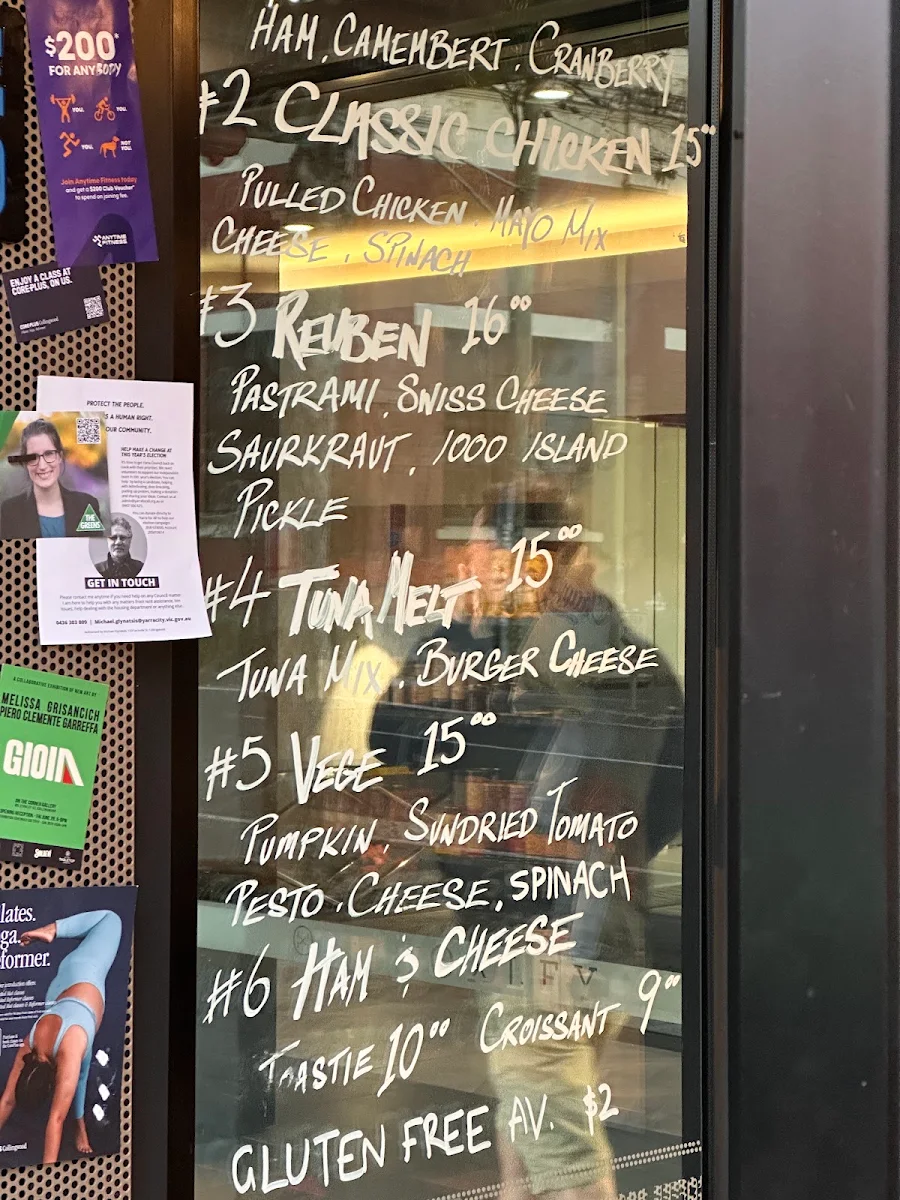 HAM. CAMEMBERT. CRANBERRY
#2 CLASSIC CHICKEN 15⁰⁰
PULLED CHICKEN. MAYO MIX
CHEESE. SPINACH
#3 REUBEN 16⁰⁰
PASTRAMI. SWISS CHEESE
SAURKRAUT. 1000 ISLAND
PICKLE
#4 TUNA MELT 15⁰⁰
TUNA MIX. BURGER CHEESE
#5 VEGE 15⁰⁰
PUMPKIN. SUNDRIED TOMATO
PESTO. CHEESE. SPINACH
#6 HAM & CHEESE
TOASTIE 10⁰⁰ CROISSANT 9⁰⁰
GLUTEN FREE AV. $2
$200*
FOR ANYBODY
YOU. YOU.
YOU. NOT YOU.
Join Anytime Fitness today
and get a $200 Club Voucher*
to spend on joining fee.
ANYTIME
FITNESS
ENJOY A CLASS AT
COREPLUS, ON US.
COREPLUS Collingwood
PROTECT THE PEOPLE.
S A HUMAN RIGHT.
OUR COMMUNITY.
HELP MAKE A CHANGE AT
THIS YEAR'S ELECTION
THE
GREENS
GET IN TOUCH
Please contact me anytime if you need help on any Council matter.
A COLLABORATIVE EXHIBITION OF NEW ART BY
MELISSA GRISANCICH
PIERO CLEMENTE GARREFFA
GIOIA
lates.
ga.
eformer.
Collingwood